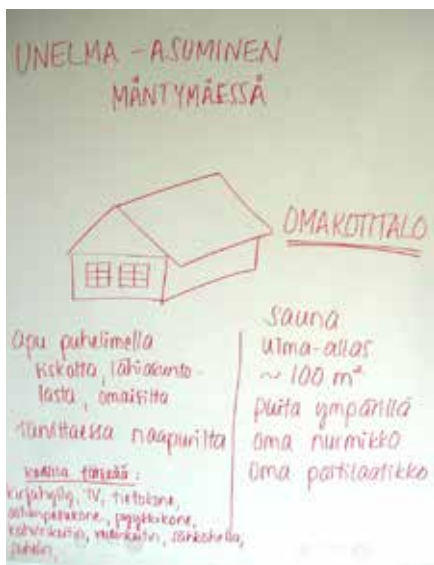 UNELMA - ASUMINEN
MÄNTYMÄESSÄ
OMAKOTITALO
apu puhelimella
lähiasunto-
lasta, omaisilta
tarvittaessa naapurilta
kodissa tärkeää:
kirjahylly, TV, tietokone,
astianpesukone, pyykkikone,
kahvinkeitin, sähköhella,
puhelin,
sauna
uima-allas
~ 100 m²
puita ympärillä
oma nurmikko
oma postilaatikko